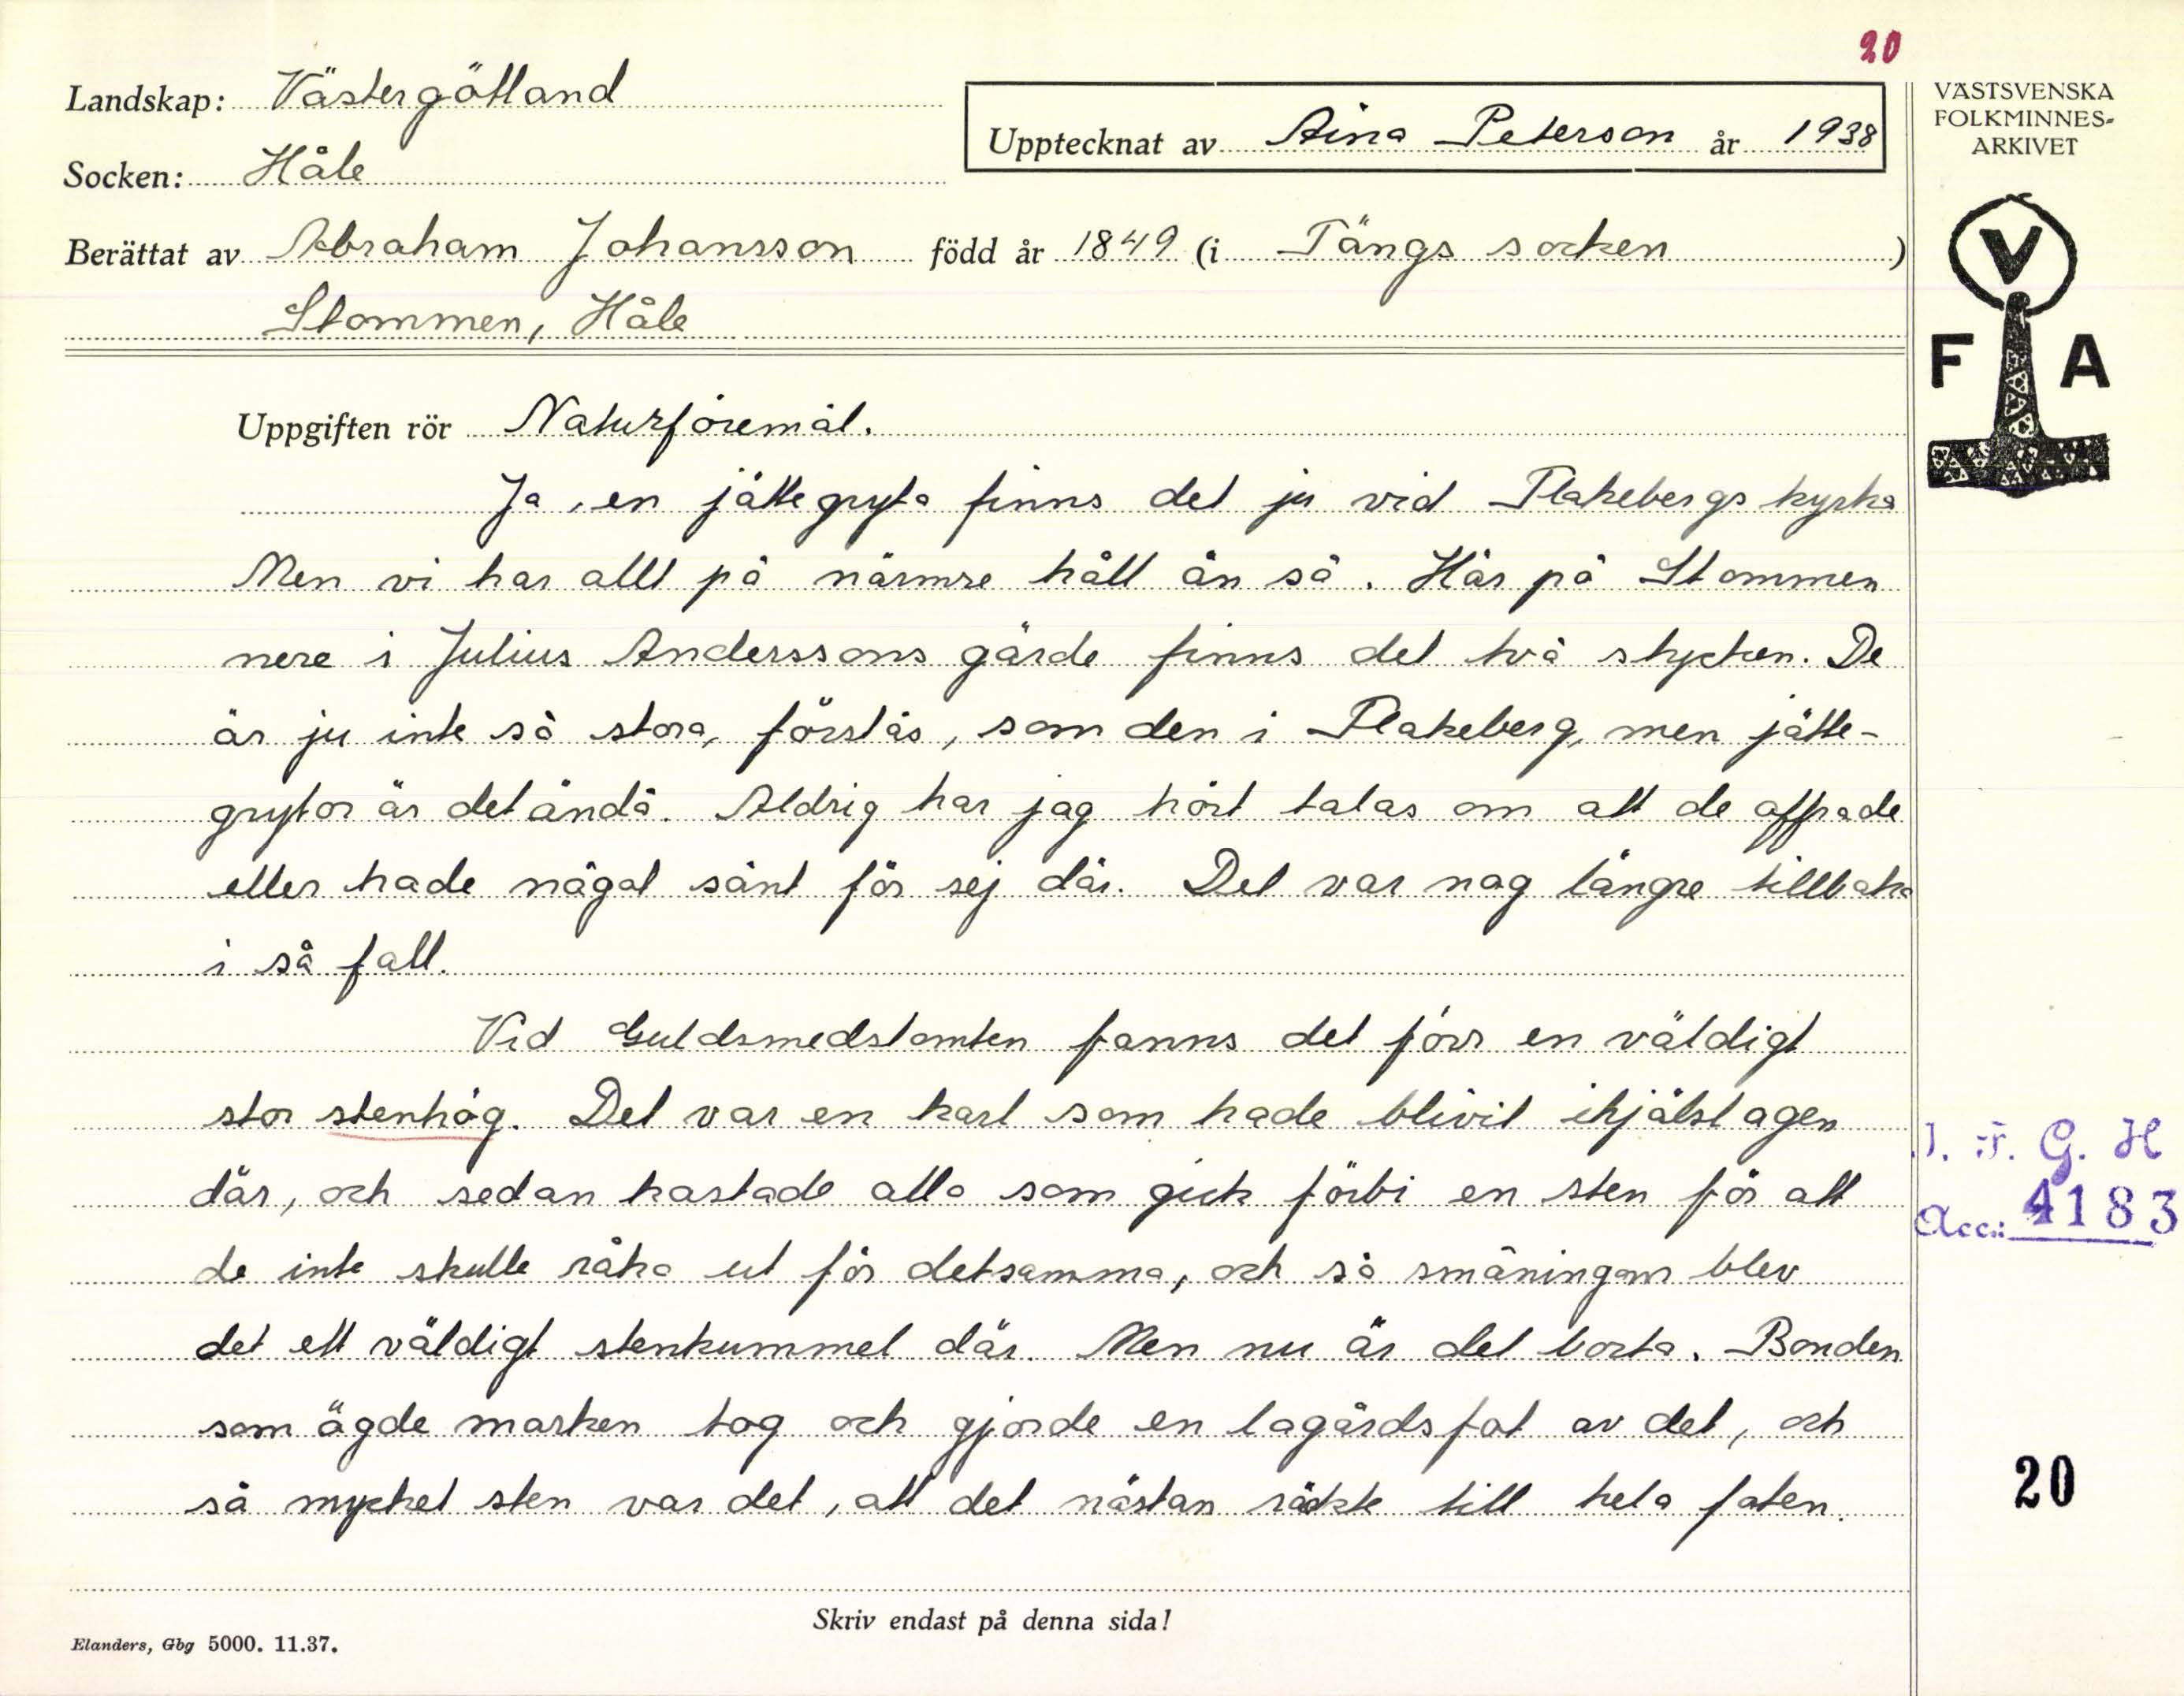 20
Landskap: Västergötland
Socken: Håle
Upptecknat av Aina Peterson år 1938
Berättat av Abraham Johansson född år 1849 (i Tängs socken)
Stommen, Håle
VÄSTSVENSKA
FOLKMINNES-
ARKIVET
V
F A
Uppgiften rör Naturföremål.
Ja, en jättegryta finns det ju vid Flakebergs kyrka
Men vi har allt på närmre håll än så. Här på Stommen
nere i Julius Anderssons gärde finns det två stycken. De
är ju inte så stora, förstås, som den i Flakeberg, men jätte-
grytor är det ändå. Aldrig har jag hört talas om att de offrade
eller hade något sånt för sej där. Det var nog längre tillbaka
i så fall.
Vid Guldsmedstomten fanns det förr en väldigt
stor stenhög. Det var en karl som hade blivit ihjälslagen
där, och sedan kastade alla som gick förbi en sten för att
de inte skulle råka ut för detsamma, och så småningom blev
det ett väldigt stenkummel där. Men nu är det borta. Bonden
som ägde marken tog och gjorde en lagårdsfot av det, och
så mycket sten var det, att det nästan räckte till hela foten.
I. F. G. H
Acc.: 4183
20
Skriv endast på denna sida!
Elanders, Gbg 5000. 11.37.